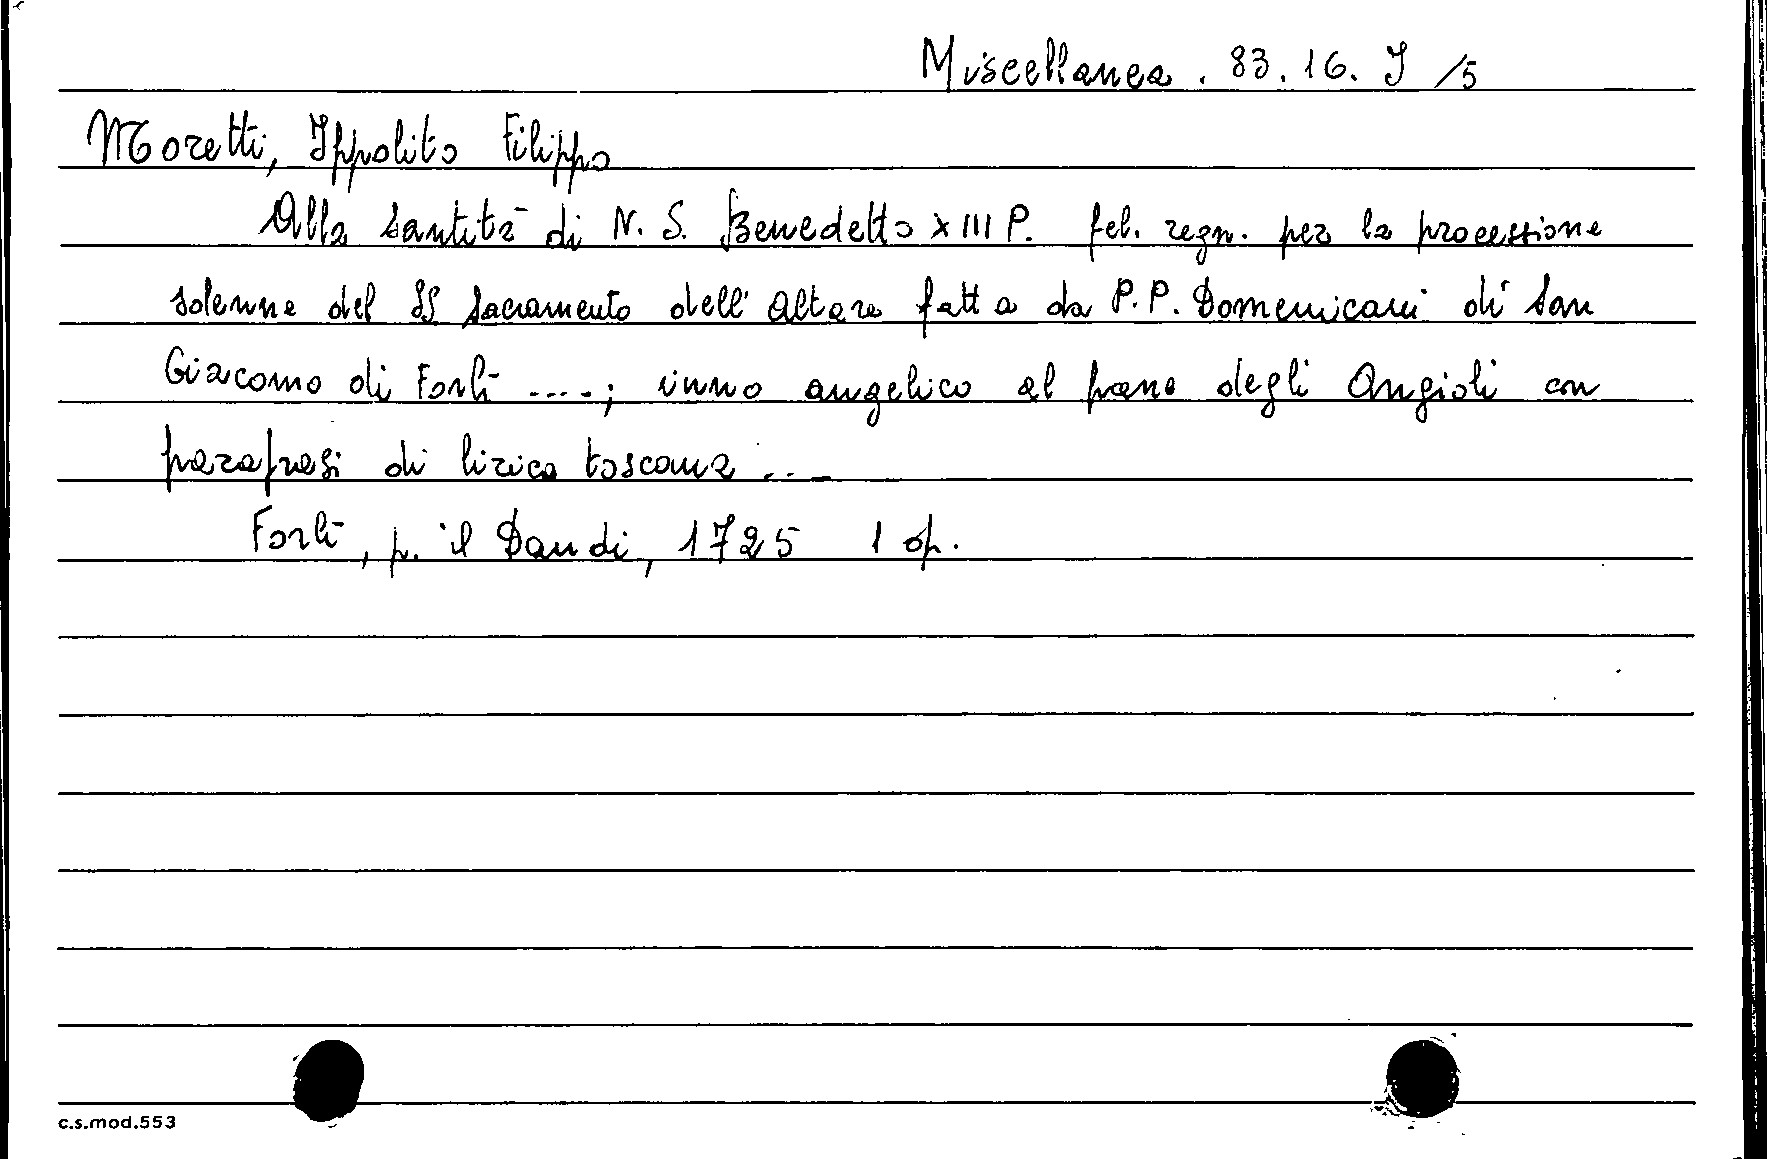 Miscellanea . 83.16. I /5
Moretti, Ippolito Filippo
Alla santità di N. S. Benedetto XIII P. fel. regn. per la processione
solenne del SS Sacramento dell'Altare fatta da P.P. Domenicani di San
Giacomo di Forlì ....; inno angelico al pane degli Angioli con
parafrasi di lirica toscana ...
Forlì, p. il Dandi, 1725 1 op.
c.s.mod.553